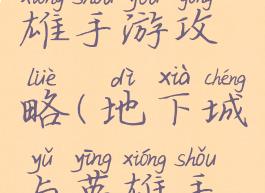 xióng shǒu yóu gōng
雄手游攻
lüè dì xià chéng
略(地下城
yǔ yīng xióng shǒu
与英雄手